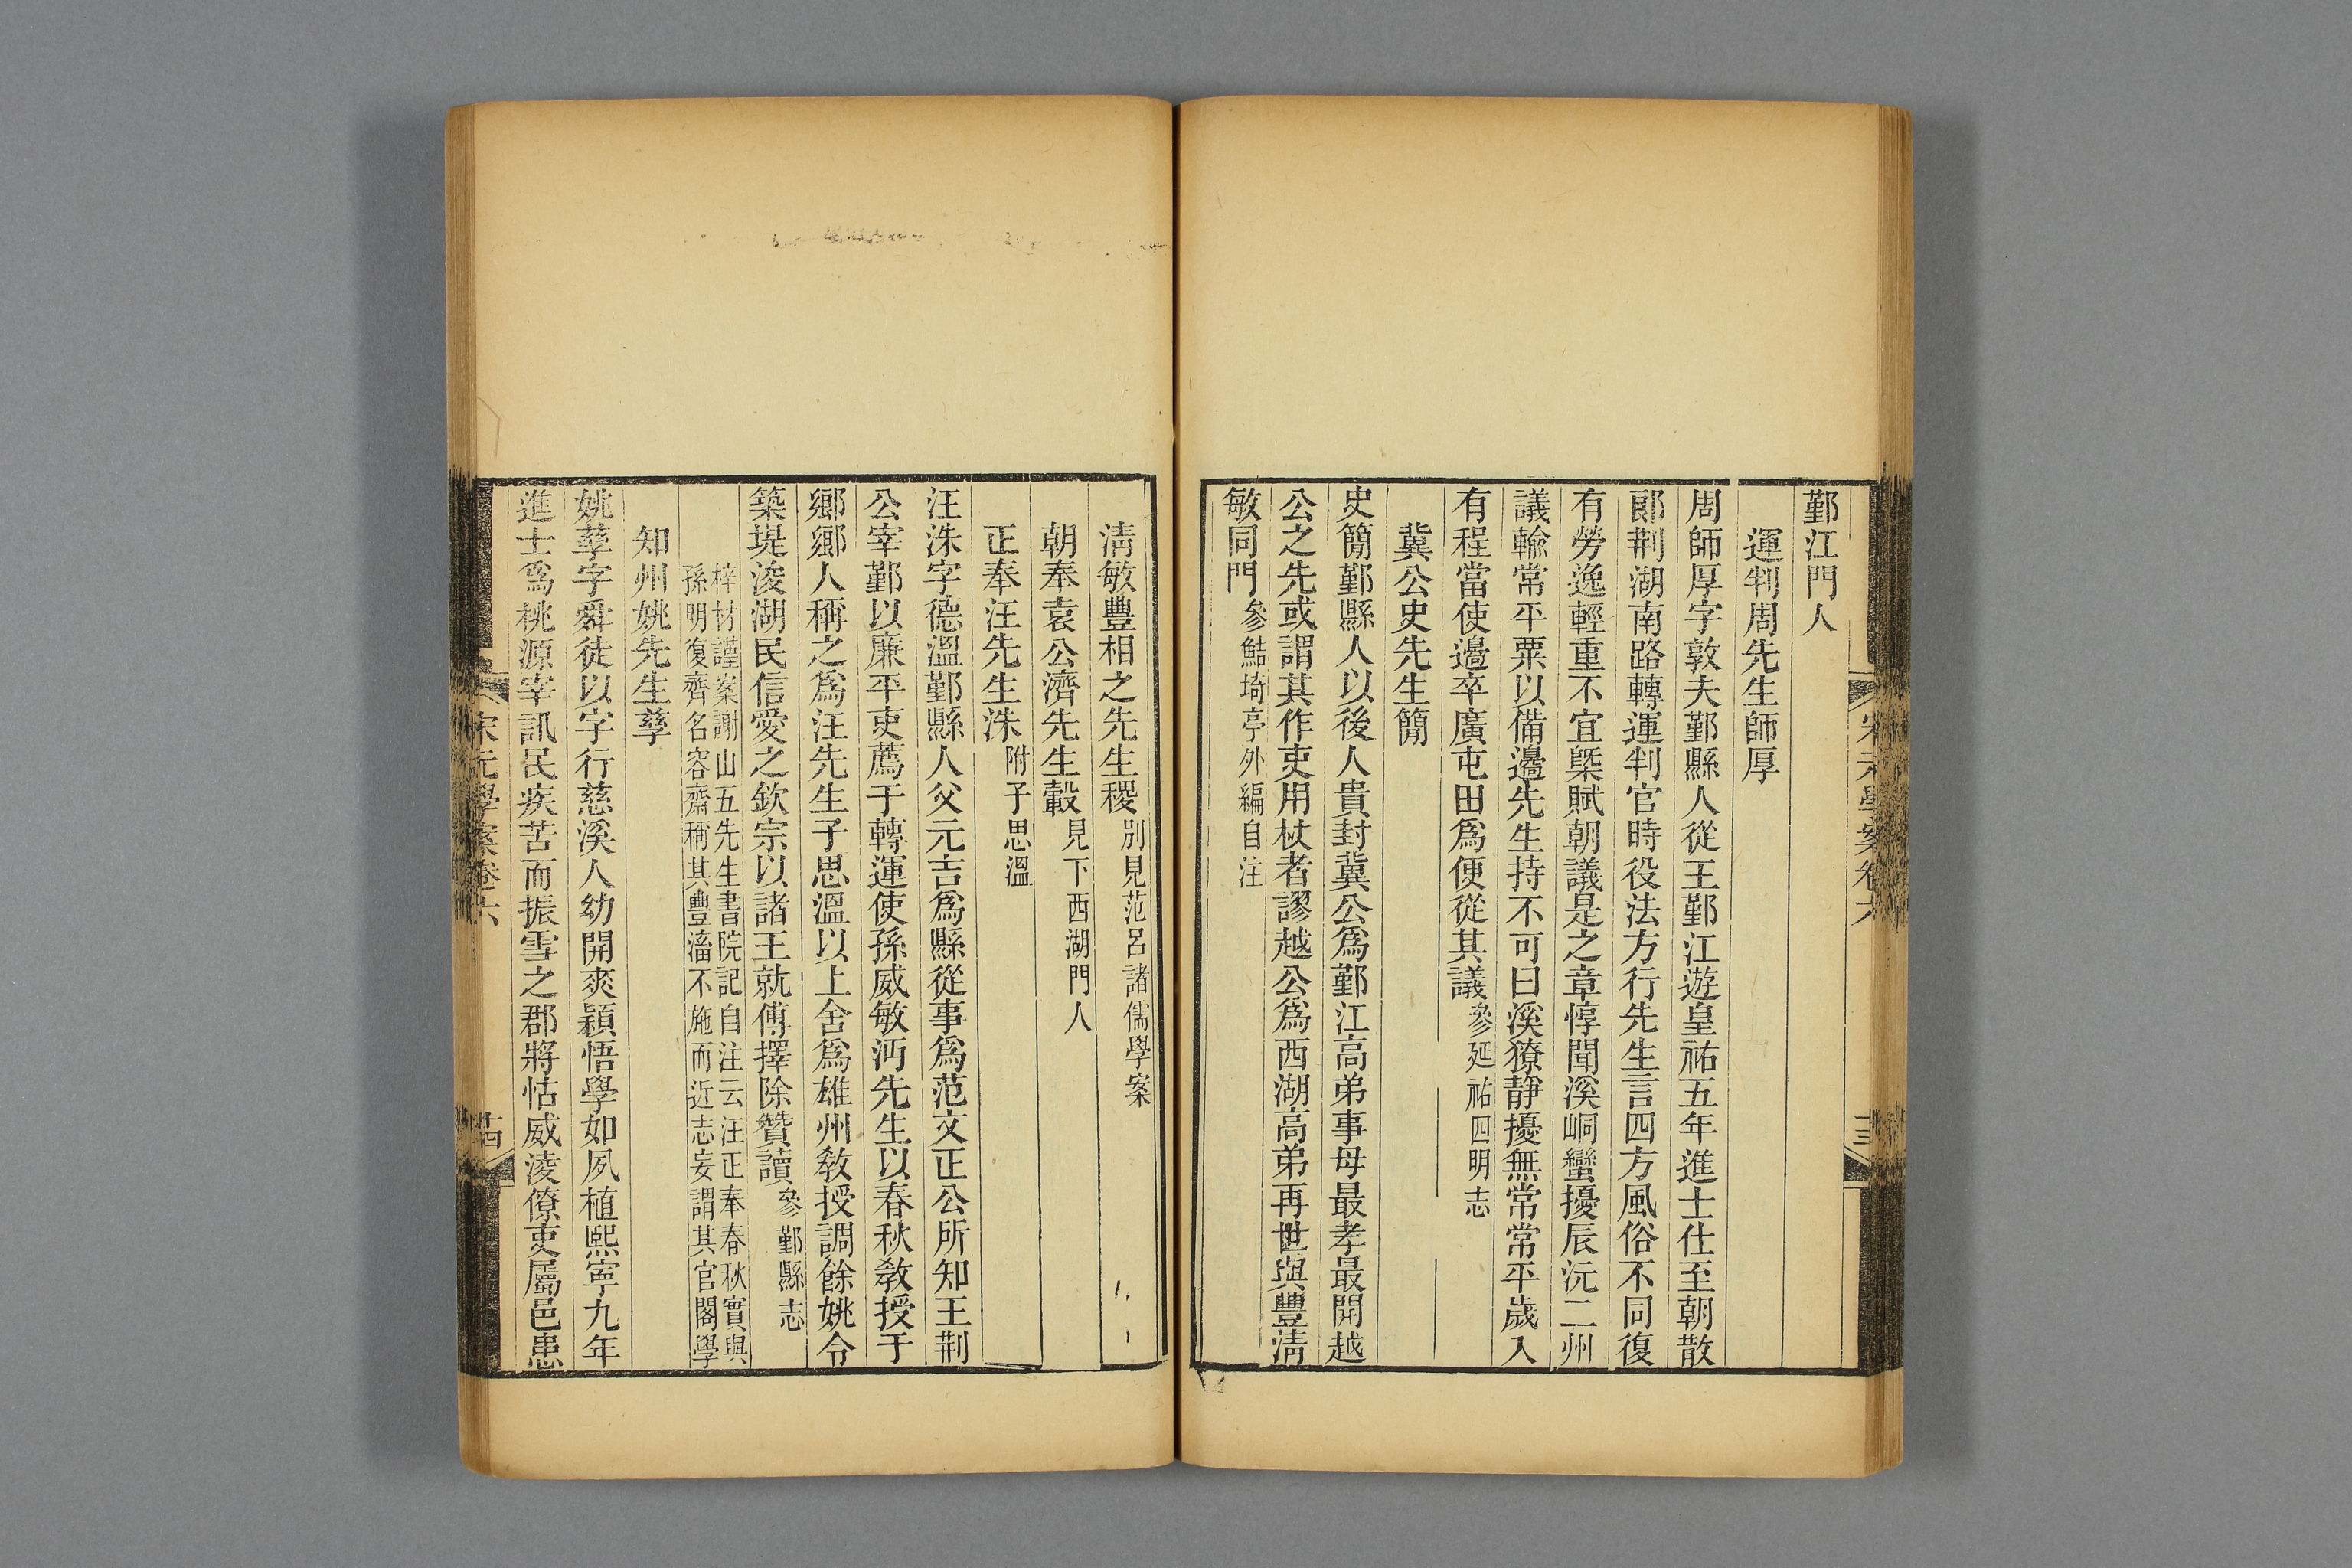 鄞江門人
運判周先生師厚
周師厚字敦夫鄞縣人從王鄞江遊皇祐五年進士仕至朝散
郞荆湖南路轉運判官時役法方行先生言四方風俗不同復
有勞逸輕重不宜槩賦朝議是之章惇開溪峒蠻擾辰沅二州
議輸常平粟以備邊先生持不可曰溪獠靜擾無常常平歲入
有程當使邊卒廣屯田爲便從其議參延祐四明志
冀公史先生簡
史簡鄞縣人以後人貴封冀公爲鄞江高弟事母最孝最開越
公之先或謂其作吏用杖者謬越公爲西湖高弟再世與豐淸
敏同門參鮚埼亭外編自注
淸敏豐相之先生稷別見范呂諸儒學案
朝奉袁公濟先生轂見下西湖門人
正奉汪先生洙附子思溫
汪洙字德溫鄞縣人父元吉爲縣從事爲范文正公所知王荆
公宰鄞以廉平吏薦于轉運使孫威敏沔先生以春秋敎授于
鄉鄉人稱之爲汪先生子思溫以上舍爲雄州敎授調餘姚令
築堤浚湖民信愛之欽宗以諸王就傅擇除贊讀參鄞縣志
梓材謹案謝山五先生書院記自注云汪正奉春秋實與
孫明復齊名容齋稱其豐㴰不施而近志妄謂其官閣學
知州姚先生孳
姚孳字舜徒以字行慈溪人幼開爽穎悟學如夙植熙寧九年
進士爲桃源宰訊民疾苦而振雪之郡將怙威淩僚吏屬邑患
宋元學案卷六
十三
宋元學案卷六
十四